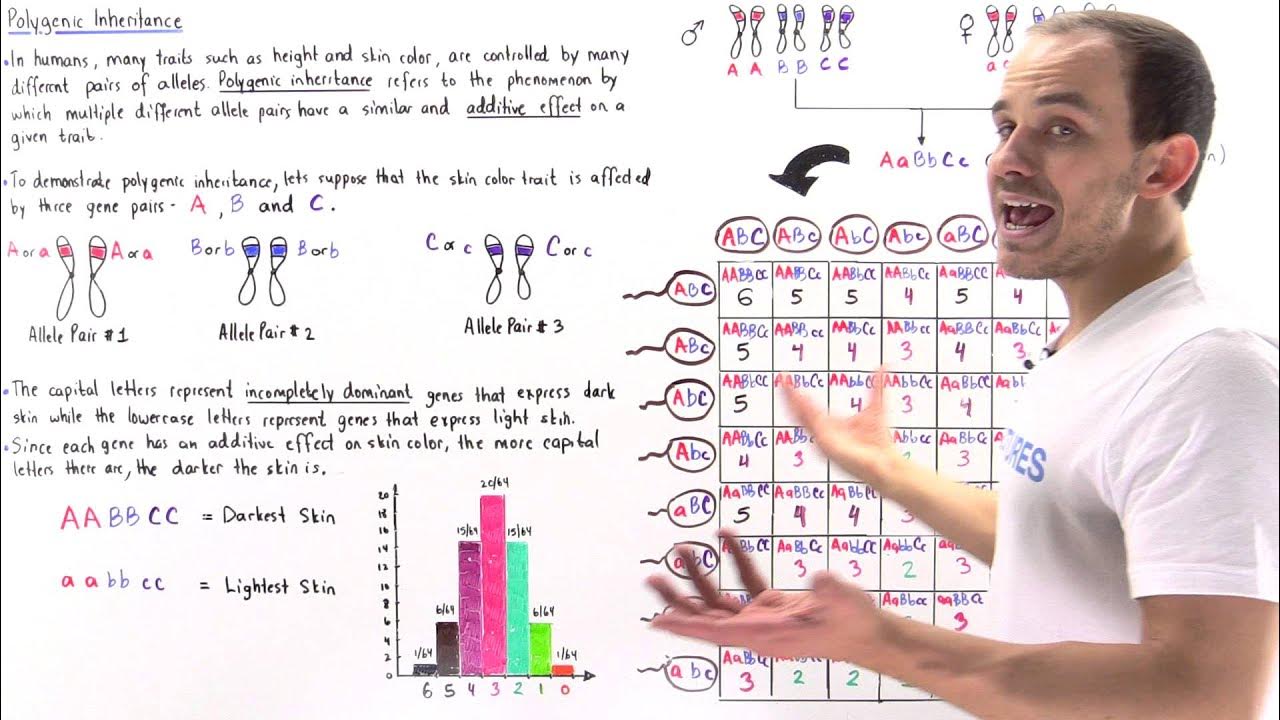 Polygenic Inheritance
• In humans, many traits such as height and skin color, are controlled by many
different pairs of alleles. Polygenic inheritance refers to the phenomenon by
which multiple different allele pairs have a similar and additive effect on a
given trait.
• To demonstrate polygenic inheritance, lets suppose that the skin color trait is affected
by three gene pairs - A, B and C.
A or a A or a B or b B or b C or c C or c
Allele Pair #1 Allele Pair #2 Allele Pair #3
• The capital letters represent incompletely dominant genes that express dark
skin while the lowercase letters represent genes that express light skin.
• Since each gene has an additive effect on skin color, the more capital
letters there are, the darker the skin is.
AA BB CC = Darkest Skin
aa bb cc = Lightest Skin
20
18
16
14
12
10
8
6
4
2
1/64 6/64 15/64 20/64 15/64 6/64 1/64
6 5 4 3 2 1 0
♂ A A B B C C
♀ a
Aa Bb Cc
ABC ABc AbC Abc aBC
ABC AABBCC AABBCc AABbCC AABbCc AaBBCC
6 5 5 4 5 4
ABc AABBCc AABBcc AABbCc AABbcc AaBBCc AaBBcc
5 4 4 3 4 3
AbC AABbCC AABbCc AAbbCC AAbbCc AaBbCC
5 4 3 4
Abc AABbCc
4 3 3
aBC AaBBCC AaBBCc AaBbCC
5 4 4 3
AaBbCc AabbCC AabbCc
3 3 2 3
AaBbcc aaBBCc
3
abc AaBbCc
3 2 2
URES